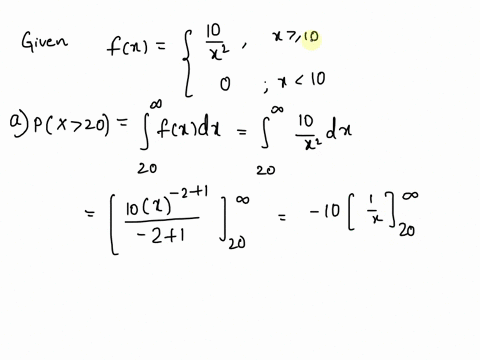 Given f(x) = { 10/x² , x ≥ 10
0 ; x < 10
a) P(X>20) = ∫₂₀^∞ f(x)dx = ∫₂₀^∞ 10/x² dx
= [ 10(x)^(-2+1) / (-2+1) ]₂₀^∞ = -10 [ 1/x ]₂₀^∞